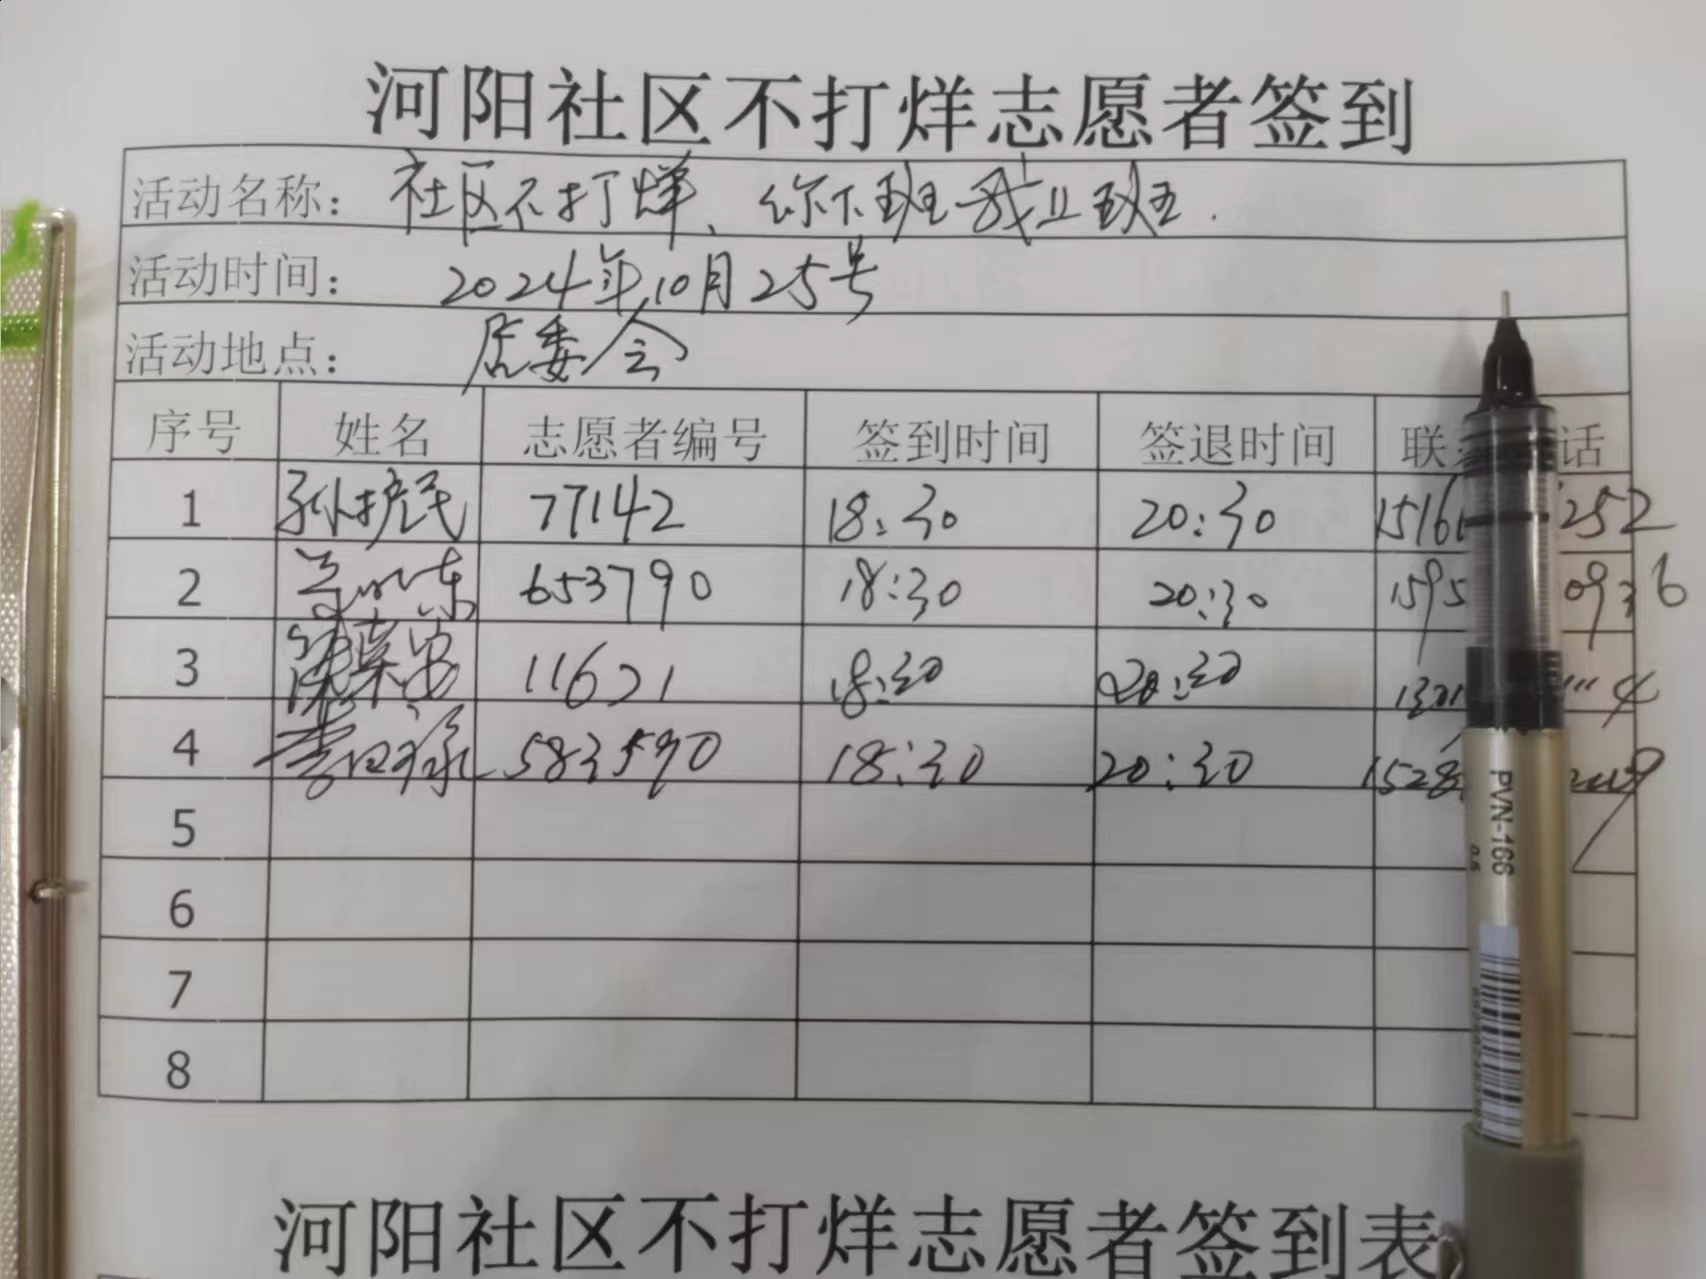 河阳社区不打烊志愿者签到
活动名称： 社区不打烊、你下班我上班.
活动时间： 2024年10月25号
活动地点： 居委会
序号 姓名 志愿者编号 签到时间 签退时间 联 话
1 孙护民 77142 18:30 20:30 1516 252
2 653790 18:30 20:30 1595 0936
3 11621 18:30 20:30 1301 4
4 李日禄 583590 18:30 20:30 1528 9
5
6
7
8
河阳社区不打烊志愿者签到表
PVN-166
0.5